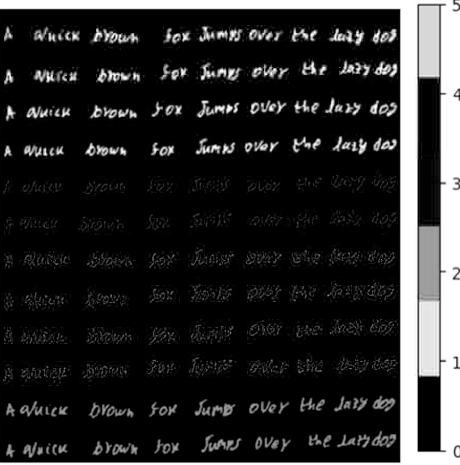 A quick brown fox Jumps over the lazy dog
A quick brown fox Jumps over the lazy dog
A quick brown fox Jumps over the lazy dog
A quick brown fox Jumps over the lazy dog
A quick brown fox Jumps over the lazy dog
A quick brown fox Jumps over the lazy dog
A quick brown fox Jumps over the lazy dog
A quick brown fox Jumps over the lazy dog
A quick brown fox Jumps over the lazy dog
A quick brown fox Jumps over the lazy dog
A quick brown fox Jumps over the lazy dog
A quick brown fox Jumps over the lazy dog
5
4
3
2
1
0